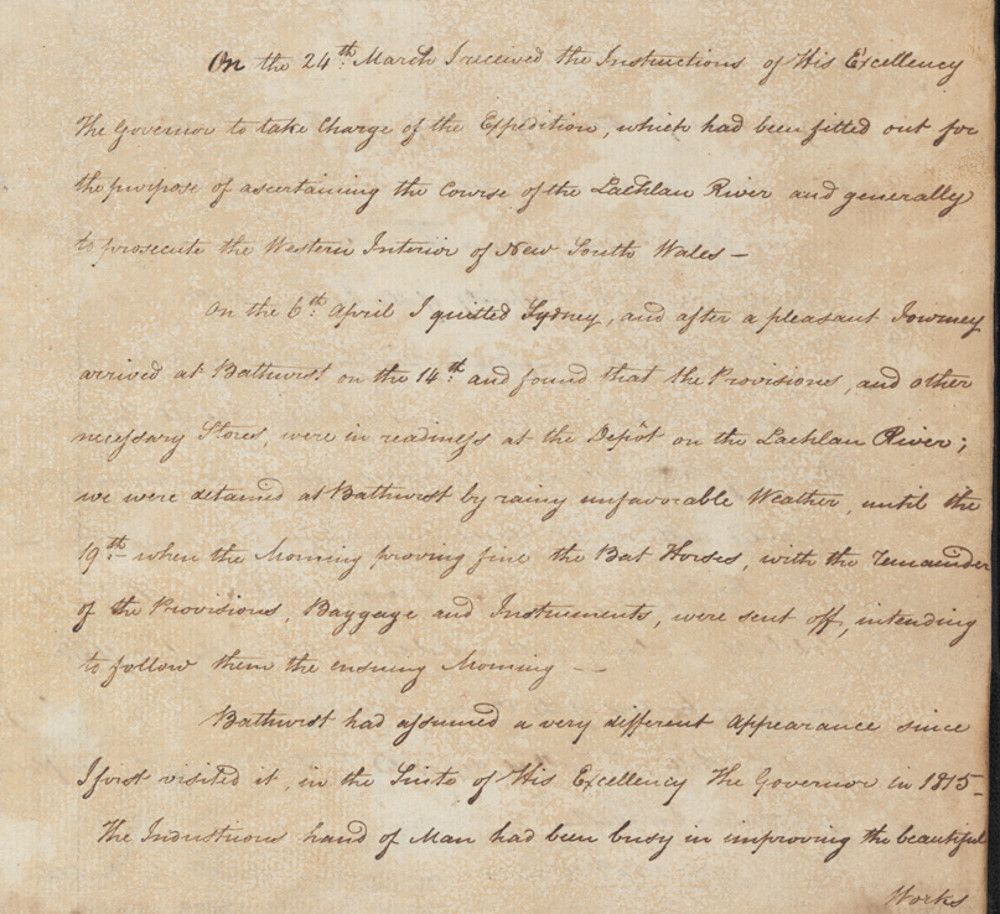 On the 24th. March I received the Instructions of His Excellency
The Governor to take Charge of the Expedition, which had been fitted out for
the purpose of ascertaining the Course of the Lachlan River and generally
to prosecute the Western Interior of New South Wales —
On the 6th. April I quitted Sydney, and after a pleasant Journey
arrived at Bathurst on the 14th. and found that the Provisions, and other
necessary Stores, were in readiness at the Depôt on the Lachlan River;
we were detained at Bathurst by rainy unfavorable Weather, until the
19th. when the Morning proving fine the Bat Horses, with the remainder
of the Provisions, Baggage and Instruments, were sent off, intending
to follow them the ensuing Morning — —
Bathurst had assumed a very different Appearance since
I first visited it, in the Suite of His Excellency The Governor in 1815 —
The Industrious hand of Man had been busy in improving the beautiful
Works